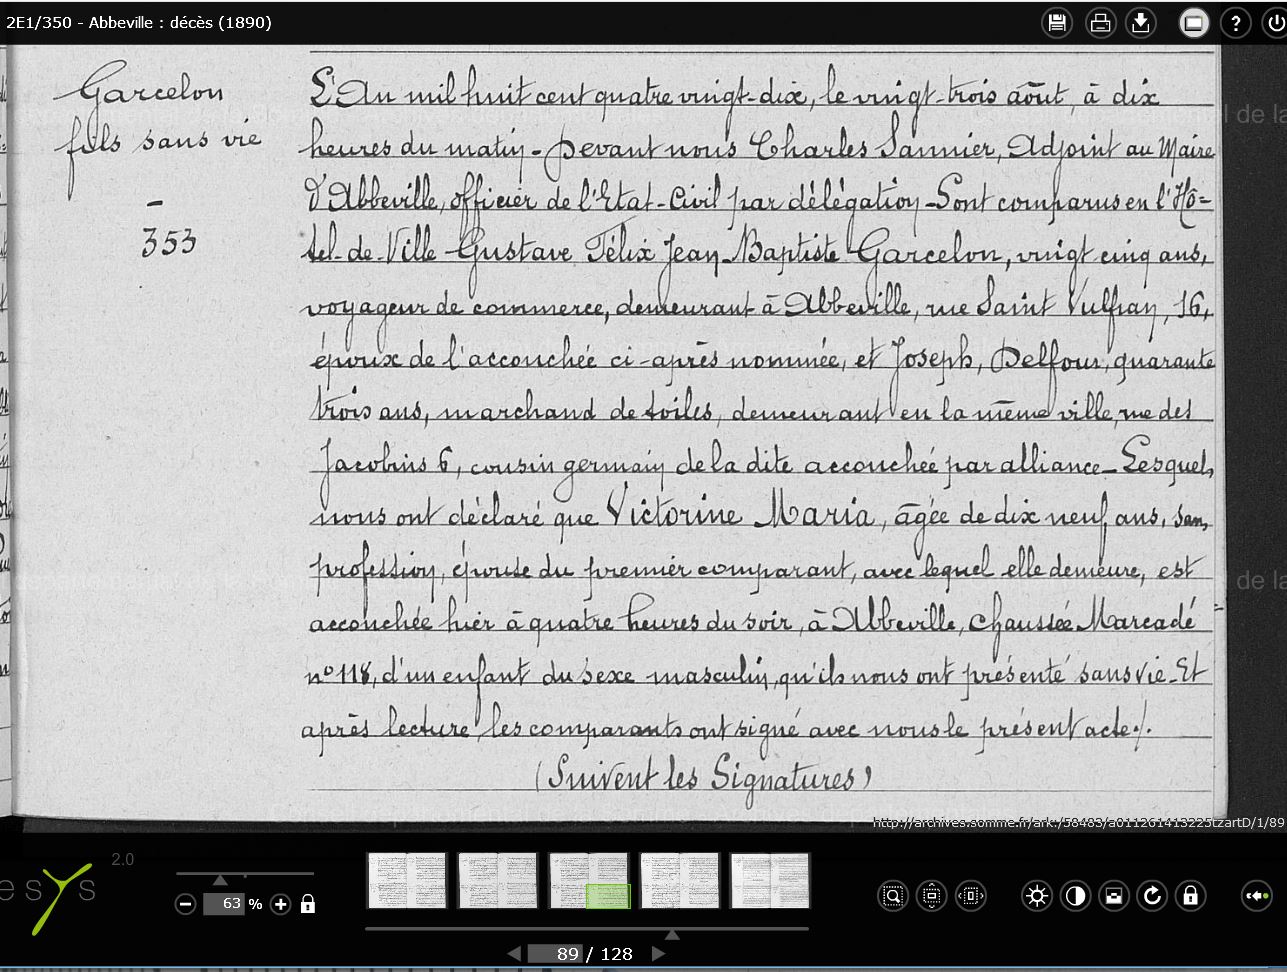 2E1/350 - Abbeville : décès (1890)
Garcelon
fils sans vie
-
353
L'An mil huit cent quatre vingt-dix, le vingt-trois août, à dix
heures du matin - Devant nous Charles Sannier, Adjoint au Maire
d'Abbeville, officier de l'Etat-Civil par délégation - Sont comparus en l'Hô-
tel-de-Ville Gustave Félix Jean Baptiste Garcelon, vingt cinq ans,
voyageur de commerce, demeurant à Abbeville, rue Saint Vulfran, 16,
époux de l'accouchée ci-après nommée, et Joseph, Delfour, quarante
trois ans, marchand de toiles, demeurant en la même ville, rue des
Jacobins 6, cousin germain de la dite accouchée par alliance - Lesquels
nous ont déclaré que Victorine Maria, âgée de dix neuf ans, sans
profession, épouse du premier comparant, avec lequel elle demeure, est
accouchée hier à quatre heures du soir, à Abbeville, chaussée Marcadé
n° 118, d'un enfant du sexe masculin, qu'ils nous ont présenté sans vie - Et
après lecture, les comparants ont signé avec nous le présent acte ./.
(Suivent les Signatures)
http://archives.somme.fr/ark:/58483/a011261413225tzartD/1/89
2.0
63 %
89 / 128